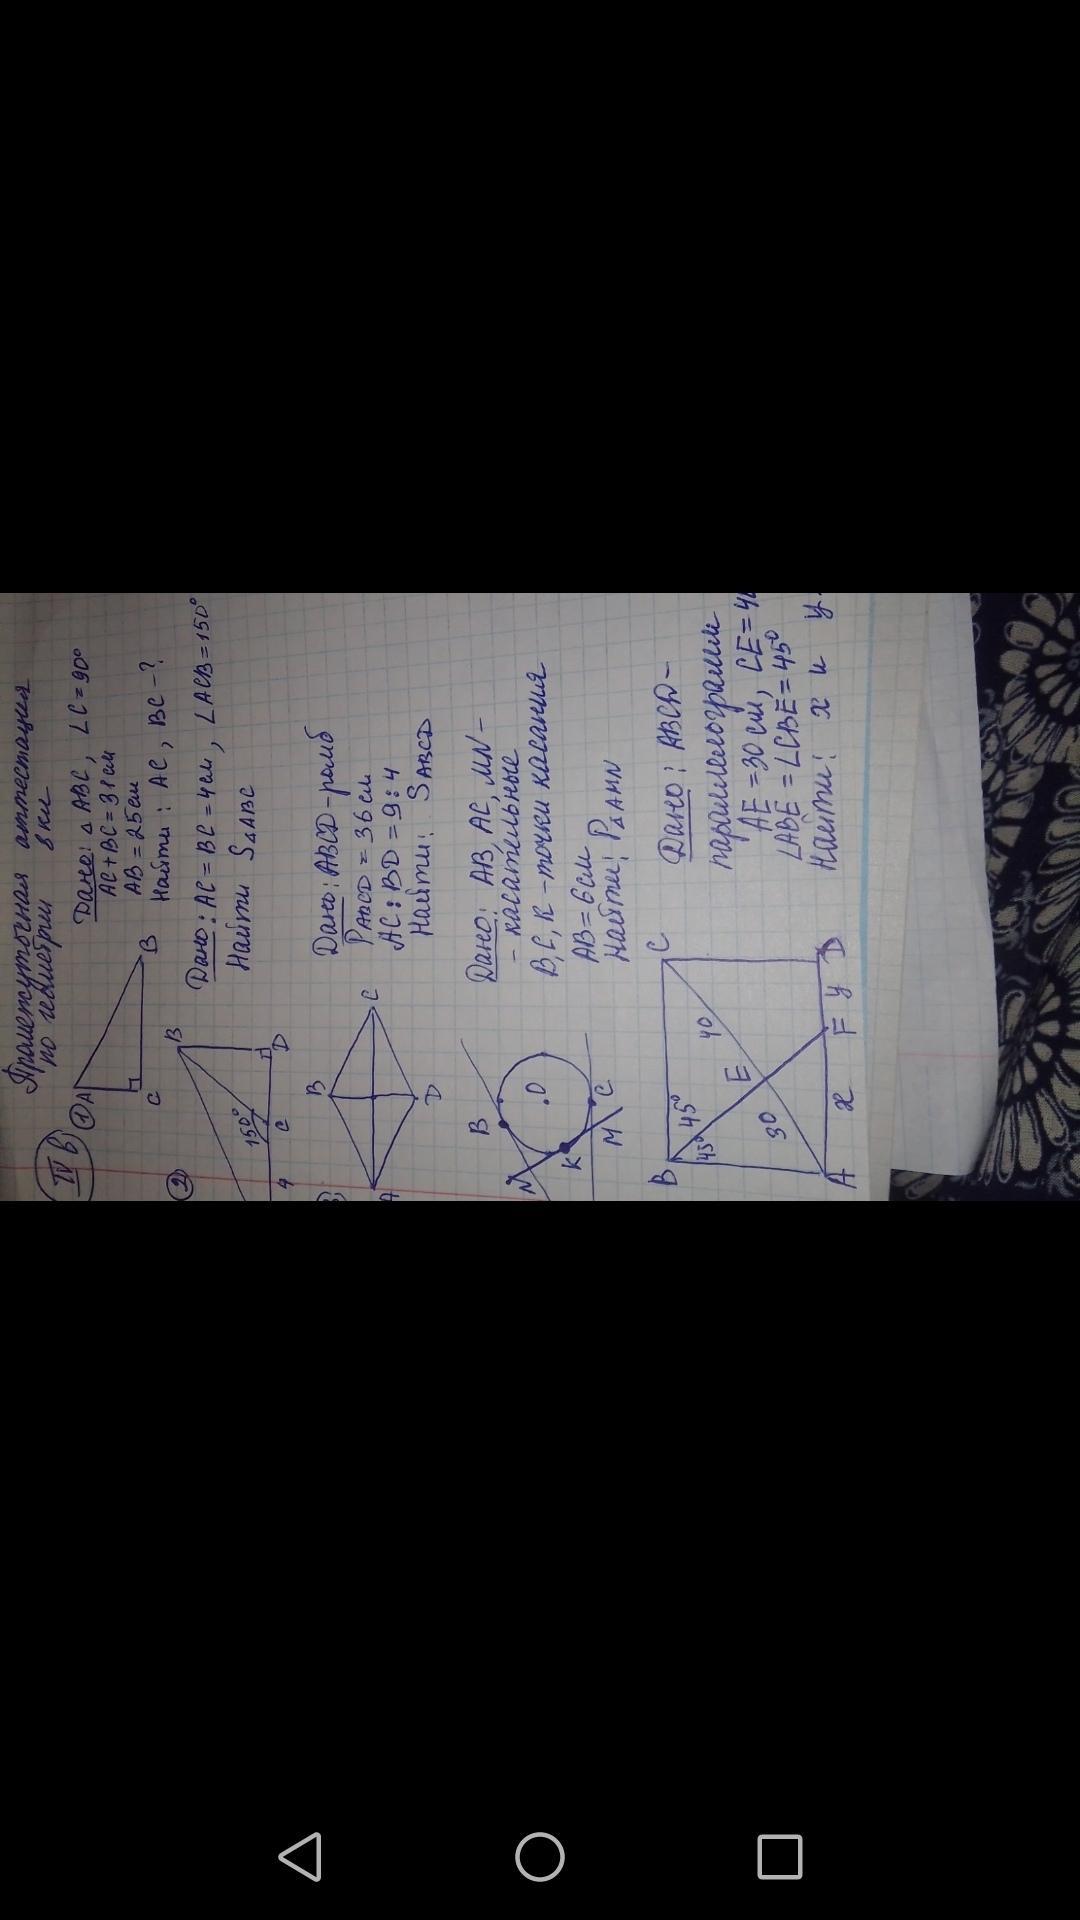 Промежуточная аттестация
по геометрии 8 кл
IV В
1
A
C
B
Дано: △ ABC, ∠C = 90°
AC + BC = 31 см
AB = 25 см
Найти: AC, BC - ?
2
B
150°
4
C
D
Дано: AC = BC = 4 см, ∠ACB = 150°
Найти S△ABC
3)
B
A
C
D
Дано: ABCD - ромб
PABCD = 36 см
AC : BD = 9 : 4
Найти: SABCD
B
N
O
K
M
C
Дано: AB, AC, MN -
- касательные
B, C, K - точки касания
AB = 6 см
Найти: P△AMN
B
C
45° 45°
40
E
30
A
x
F
y
D
Дано: ABCD -
параллелограмм
AE = 30 см, CE = 40
∠ABE = ∠CBE = 45°
Найти: x и y